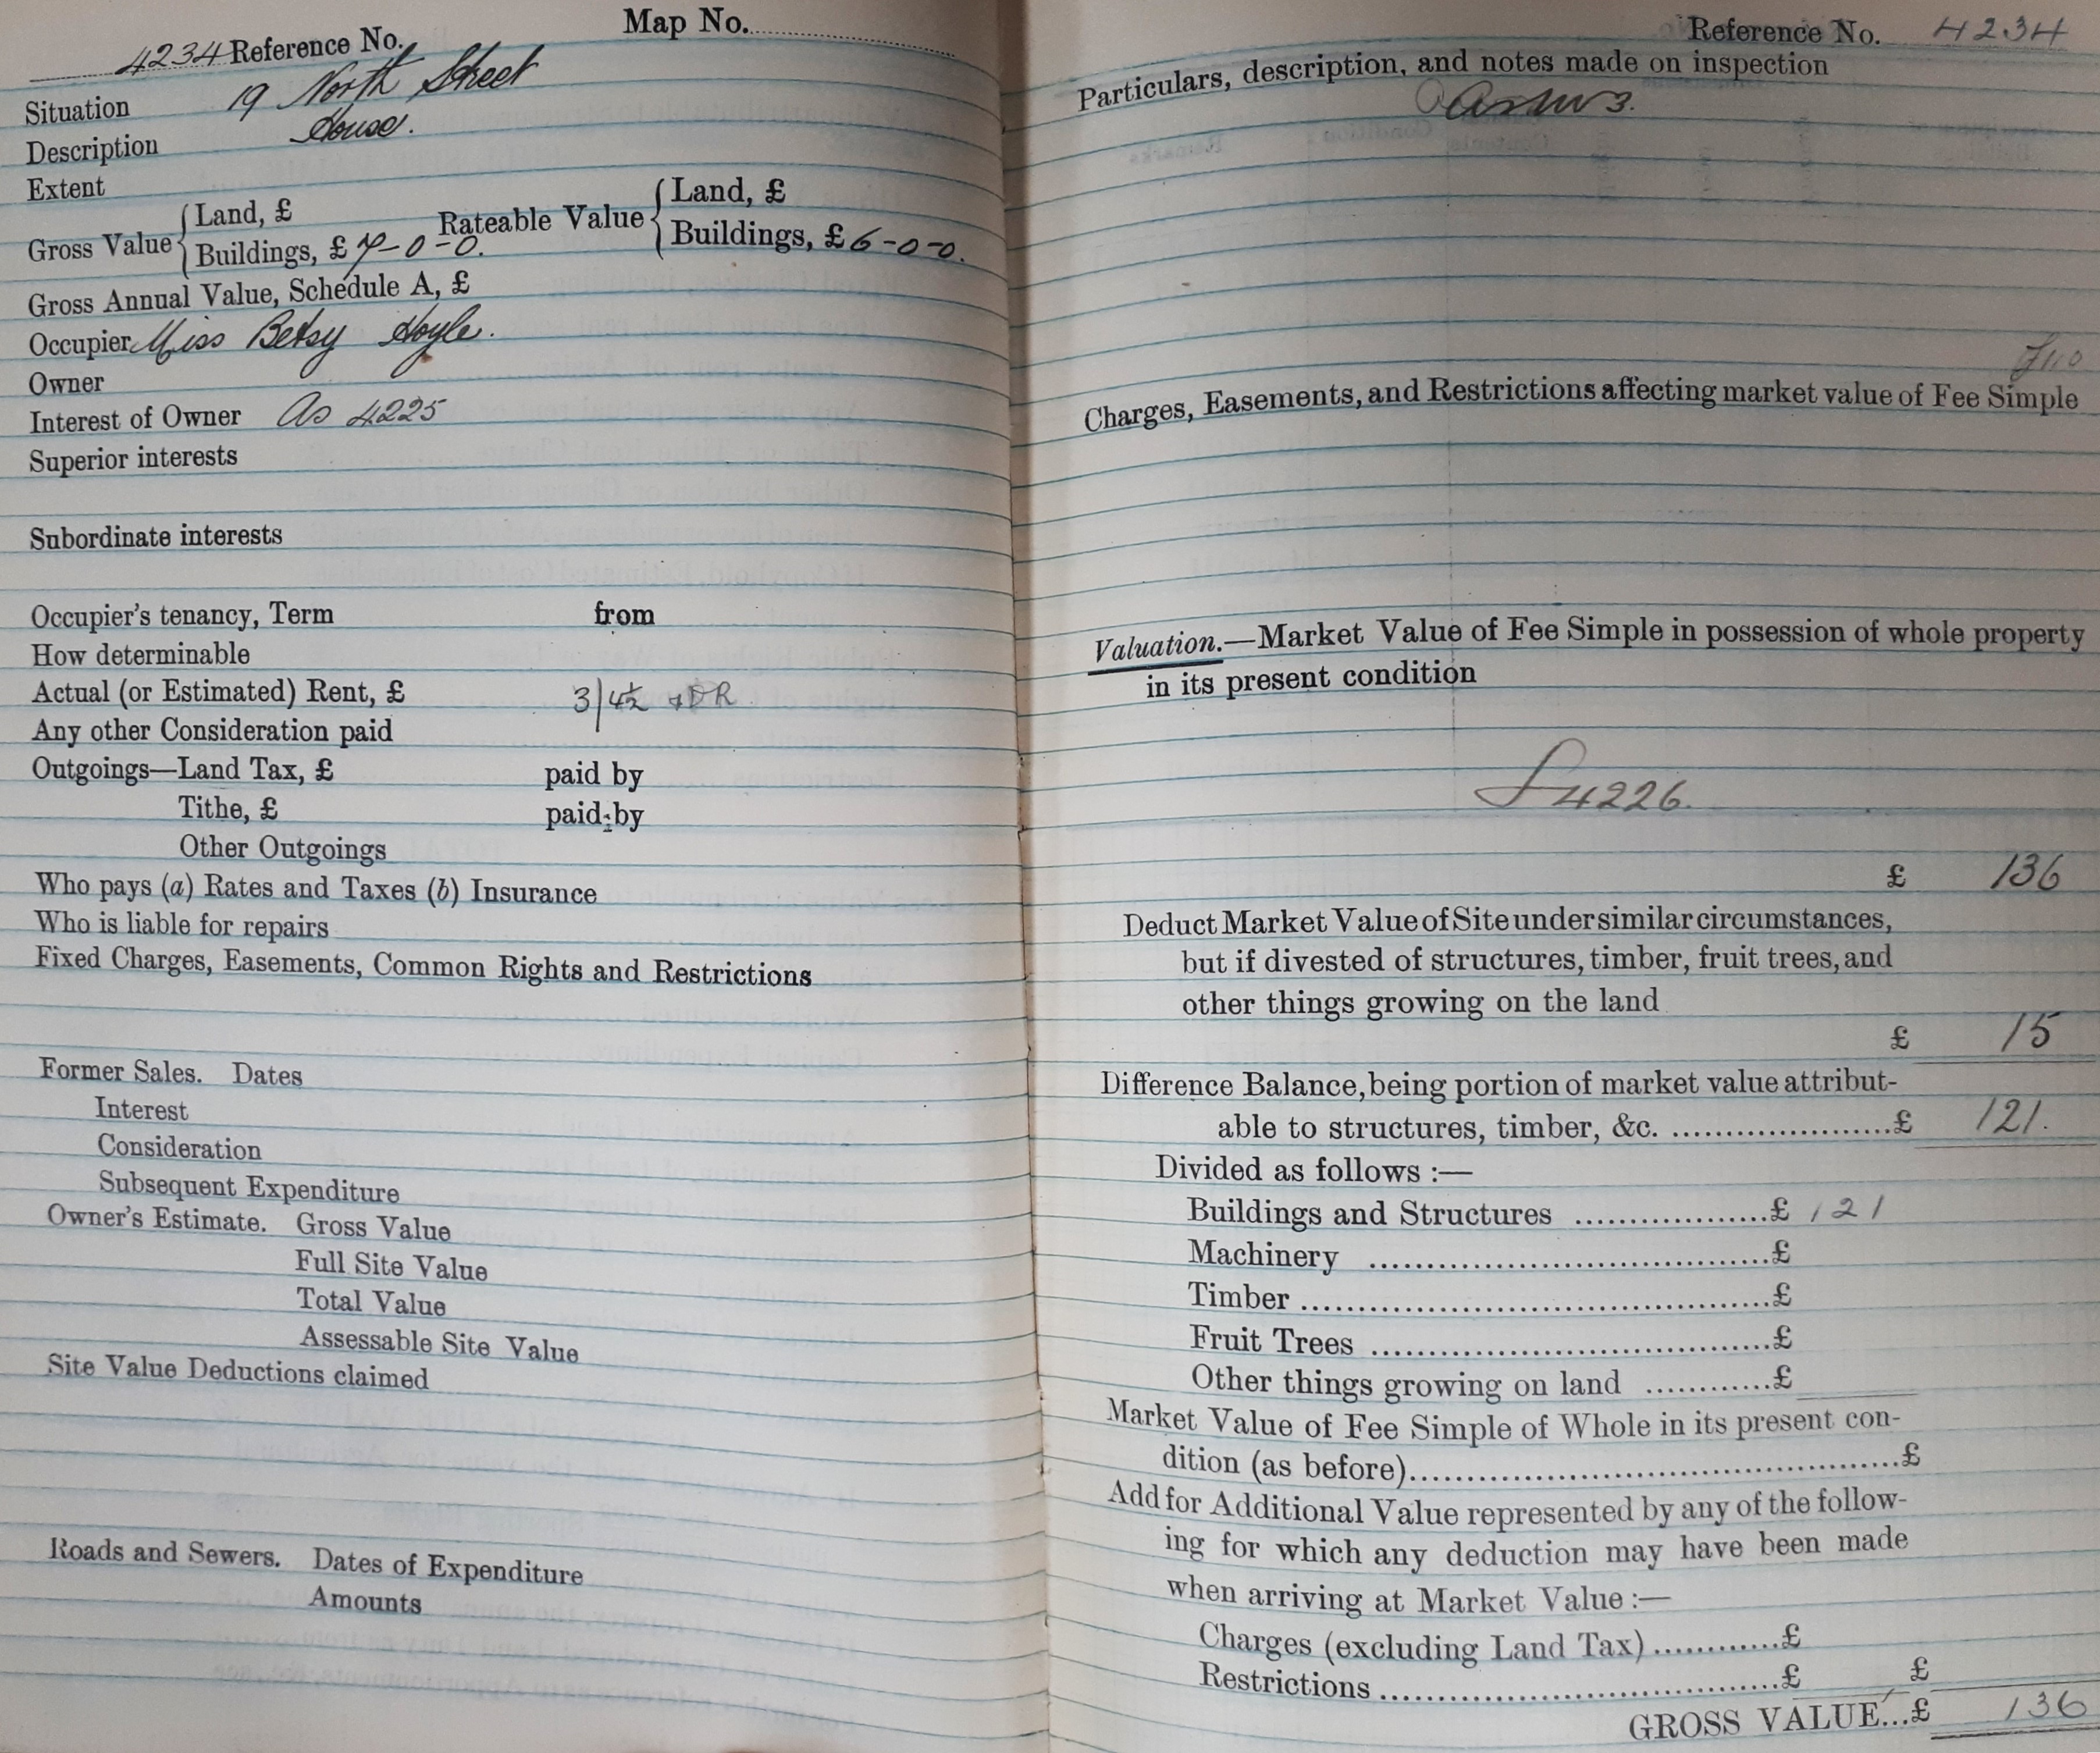 Map No.
4234 Reference No.
Situation 19 North Street
Description House.
Extent
Gross Value { Land, £ Rateable Value { Land, £
Buildings, £ 7-0-0. Buildings, £ 6-0-0.
Gross Annual Value, Schedule A, £
Occupier Miss Betsy Hoyle.
Owner
Interest of Owner As 4225
Superior interests
Subordinate interests
Occupier's tenancy, Term from
How determinable
Actual (or Estimated) Rent, £ 3/4½ + DR
Any other Consideration paid
Outgoings—Land Tax, £ paid by
Tithe, £ paid by
Other Outgoings
Who pays (a) Rates and Taxes (b) Insurance
Who is liable for repairs
Fixed Charges, Easements, Common Rights and Restrictions
Former Sales. Dates
Interest
Consideration
Subsequent Expenditure
Owner's Estimate. Gross Value
Full Site Value
Total Value
Assessable Site Value
Site Value Deductions claimed
Roads and Sewers. Dates of Expenditure
Amounts
Reference No. 4234
Particulars, description, and notes made on inspection
Charges, Easements, and Restrictions affecting market value of Fee Simple
Valuation.—Market Value of Fee Simple in possession of whole property
in its present condition
4226.
£ 136
Deduct Market Value of Site under similar circumstances,
but if divested of structures, timber, fruit trees, and
other things growing on the land
£ 15
Difference Balance, being portion of market value attribut-
able to structures, timber, &c. ....................£ 121.
Divided as follows :—
Buildings and Structures ..................£ 121
Machinery ....................................£
Timber ..........................................£
Fruit Trees ....................................£
Other things growing on land ............£
Market Value of Fee Simple of Whole in its present con-
dition (as before)..............................................£
Add for Additional Value represented by any of the follow-
ing for which any deduction may have been made
when arriving at Market Value :—
Charges (excluding Land Tax)............£
Restrictions .....................................£ £
GROSS VALUE...£ 136